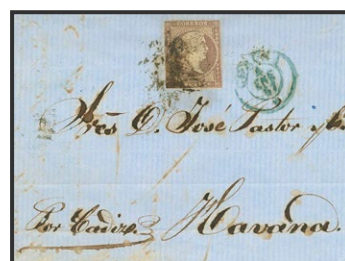 CORREOS
Sres D. José Pastor y Ca
Por Cadiz
Havana.